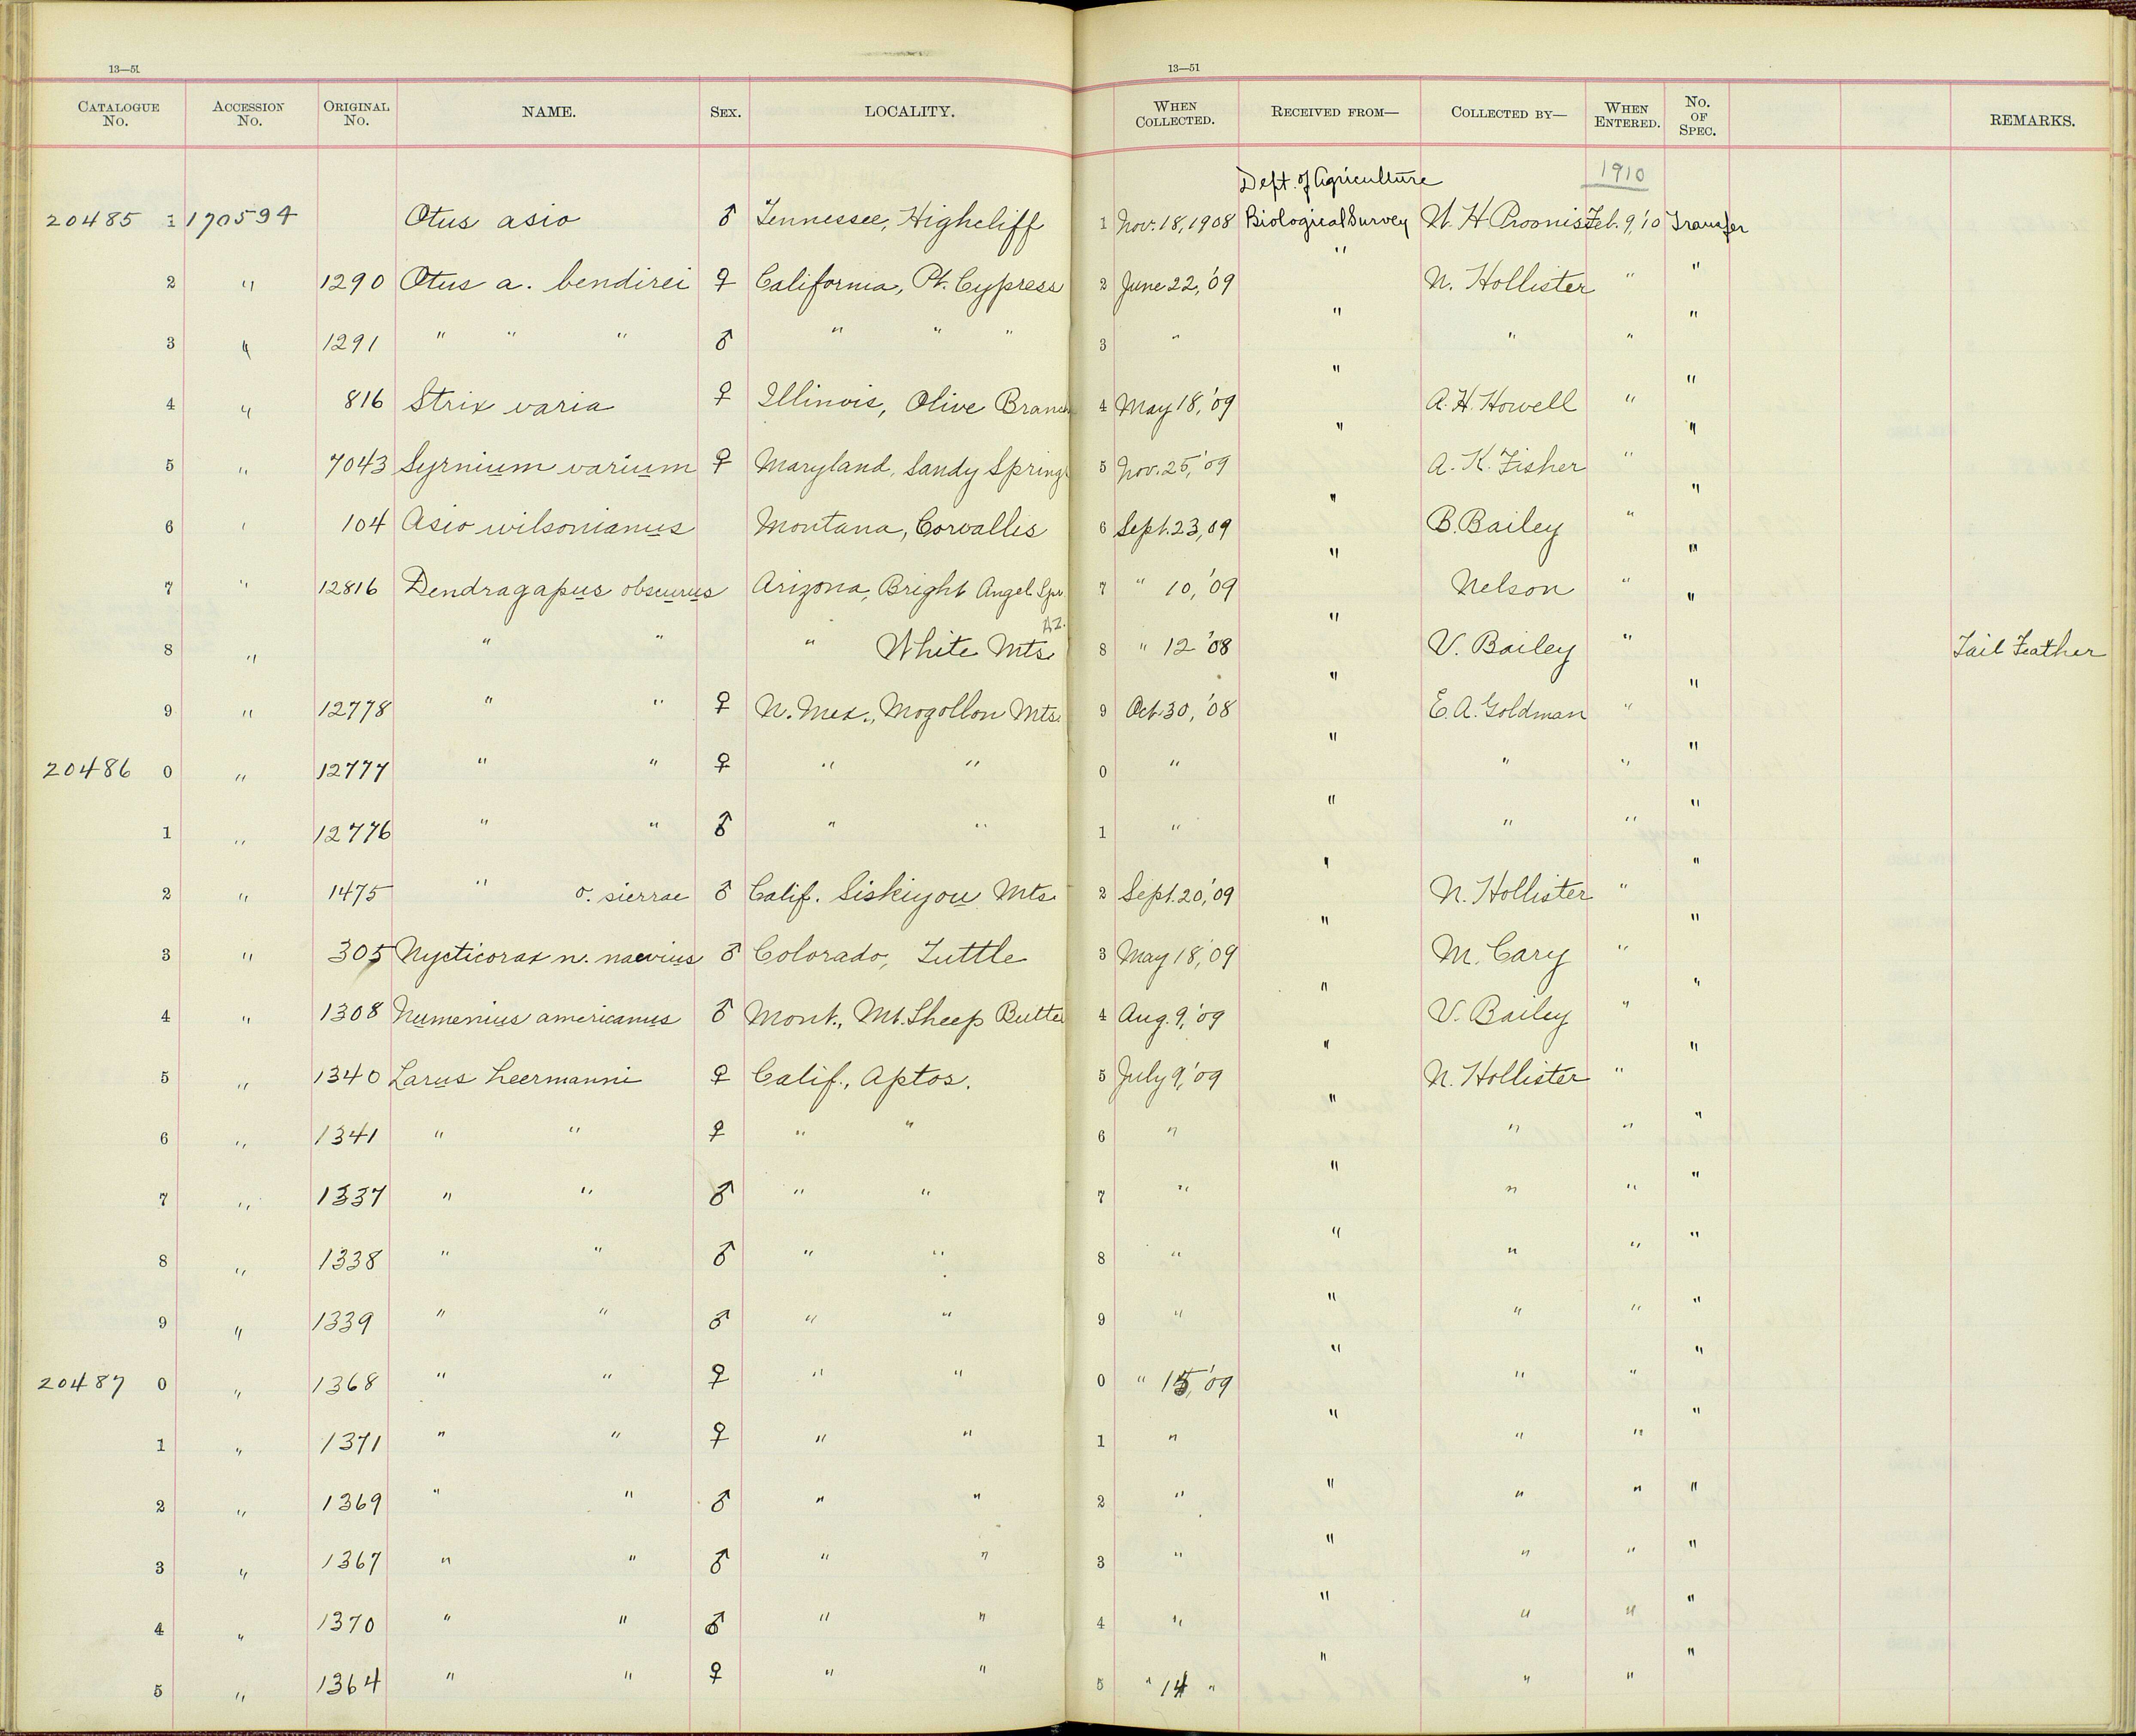 13—51 13—51
CATALOGUE No. ACCESSION No. ORIGINAL No. NAME. SEX. LOCALITY. WHEN COLLECTED. RECEIVED FROM— COLLECTED BY— WHEN ENTERED. No. OF SPEC. REMARKS.
Dept. of Agriculture 1910
20485 1 170594 Otus asio ♂ Tennessee, Highcliff 1 Nov. 18, 1908 Biological Survey H Feb. 9, '10 Transfer
2 " 1290 Otus a. bendirei ♀ California, Pt. Cypress 2 June 22, '09 " N. Hollister " "
3 " 1291 " " " ♂ " " " 3 " " " " "
4 " 816 Strix varia ♀ Illinois, Olive Branch 4 May 18, '09 " A. H. Howell " "
5 " 7043 Syrnium varium ♀ Maryland, Sandy Spring 5 Nov. 25, '09 " A. K. Fisher " "
6 " 104 Asio wilsonianus Montana, Corvallis 6 Sept. 23, 09 " B. Bailey " "
7 " 12816 Dendragapus obscurus Arizona, Bright Angel Spr. 7 " 10, '09 " Nelson " "
8 " " " " White Mts. Az. 8 " 12 '08 " V. Bailey " " Tail Feather
9 " 12778 " " ♀ N. Mex., Mogollon Mts. 9 Oct. 30, '08 " E. A. Goldman " "
20486 0 " 12777 " " ♀ " " 0 " " " " "
1 " 12776 " " ♂ " " 1 " " " " "
2 " 1475 " o. sierrae ♂ Calif. Siskiyou Mts. 2 Sept. 20, '09 " N. Hollister " "
3 " 305 Nycticorax n. naevius ♂ Colorado, Tuttle 3 May 18, '09 " M. Cary " "
4 " 1308 Numenius americanus ♂ Mont., Mt. Sheep Butte 4 Aug. 9, '09 " V. Bailey " "
5 " 1340 Larus heermanni ♀ Calif., Aptos. 5 July 9, '09 " N. Hollister " "
6 " 1341 " " ♀ " " 6 " " " " "
7 " 1337 " " ♂ " " 7 " " " " "
8 " 1338 " " ♂ " " 8 " " " " "
9 " 1339 " " ♂ " " 9 " " " " "
20487 0 " 1368 " " ♀ " " 0 " 15, '09 " " " "
1 " 1371 " " ♀ " " 1 " " " " "
2 " 1369 " " ♂ " " 2 " " " " "
3 " 1367 " " ♂ " " 3 " " " " "
4 " 1370 " " ♂ " " 4 " " " " "
5 " 1364 " " ♀ " " 5 " 14 " " " " "